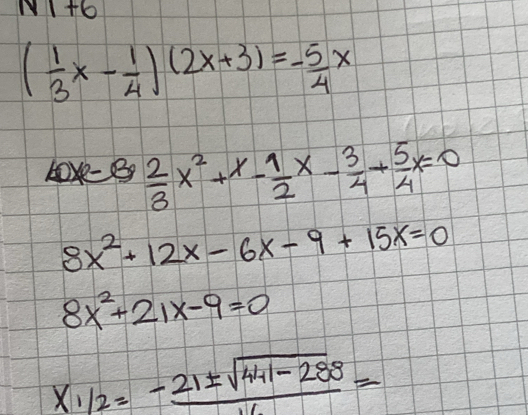 N1+6
(1/3 x - 1/4)(2x+3) = -5/4 x
2/3 x² + x - 1/2 x - 3/4 + 5/4 x = 0
8x² + 12x - 6x - 9 + 15x = 0
8x² + 21x - 9 = 0
x 1/2 = -21 ± √441 - 288 / 16 =